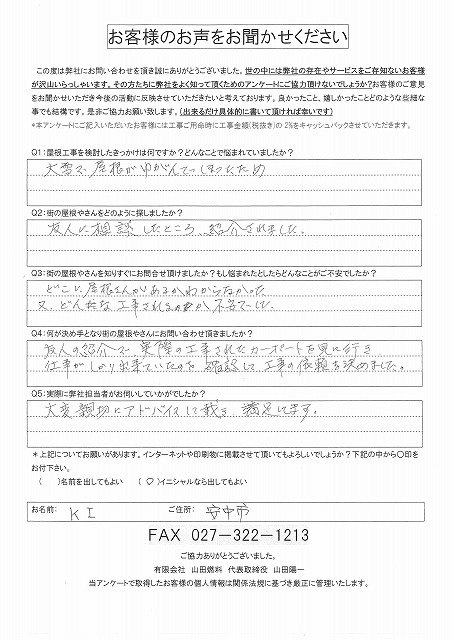 お客様のお声をお聞かせください
この度は弊社にお問い合わせを頂き誠にありがとうございました。世の中には弊社の存在やサービスをご存知ないお客様
が沢山いらっしゃいます。その方たちに弊社をよく知って頂くためのアンケートにご協力頂けないでしょうか?お客様のご意見
をお聞かせいただき今後の活動に反映させていただきたいと考えております。良かったこと、嬉しかったことどのような些細な
事でも結構です。是非ご協力お願い致します。(出来るだけ具体的に書いて頂ければ幸いです)
*本アンケートにご記入いただいたお客様には工事ご用命時に工事金額(税抜き)の 2%をキャッシュバックさせていただきます。
Q1:屋根工事を検討したきっかけは何ですか?どんなことで悩まれていましたか?
大雪で屋根がゆがんでしまったため
Q2:街の屋根やさんをどのように探しましたか?
友人に相談したところ、紹介されました。
Q3:街の屋根やさんを知りすぐにお問合せ頂けましたか?もし悩まれたとしたらどんなことがご不安でしたか?
どこに屋根さんがあるかわからなかった
又、どんな工事されるのか不安でした。
Q4:何が決め手となり街の屋根やさんにお問い合わせ頂きましたか?
友人の紹介で、実際の工事されたカーポートを見に行き
仕事がしっかり出来ていたのを確認して工事の依頼を決めました。
Q5:実際に弊社担当者がお伺いしていかがでしたか?
大変親切にアドバイスして戴き、満足してます。
*上記についてお願いがあります。インターネットや印刷物に掲載させて頂いてもよろしいでしょうか?下記の中から〇印を
お付け下さい。
( )名前を出してもよい (〇)イニシャルなら出してもよい
お名前: K I ご住所: 安中市
FAX 027-322-1213
ご協力ありがとうございました。
有限会社 山田燃料 代表取締役 山田陽一
当アンケートで取得したお客様の個人情報は関係法規に基づき厳正に管理いたします。